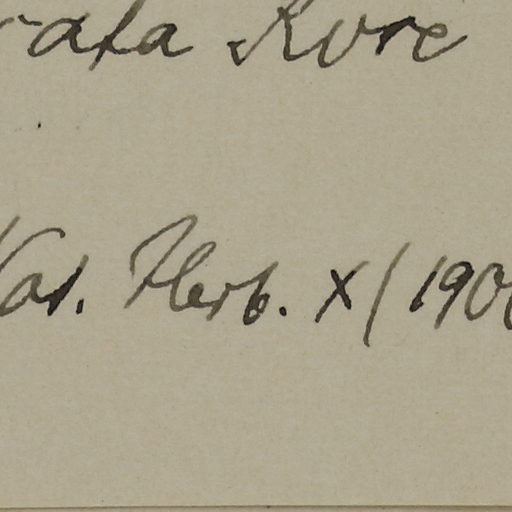 rata Kvre
Nat. Herb. X/190